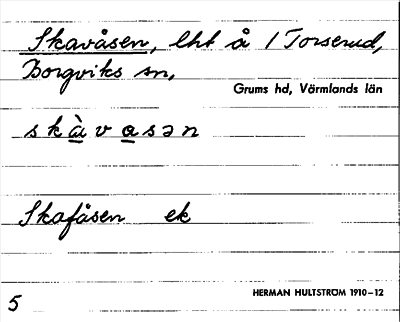 Skavåsen, lht å 1 Torserud,
Borgviks sn,
Grums hd, Värmlands län
skàvasən
Skafåsen ek
HERMAN HULTSTRÖM 1910–12
5